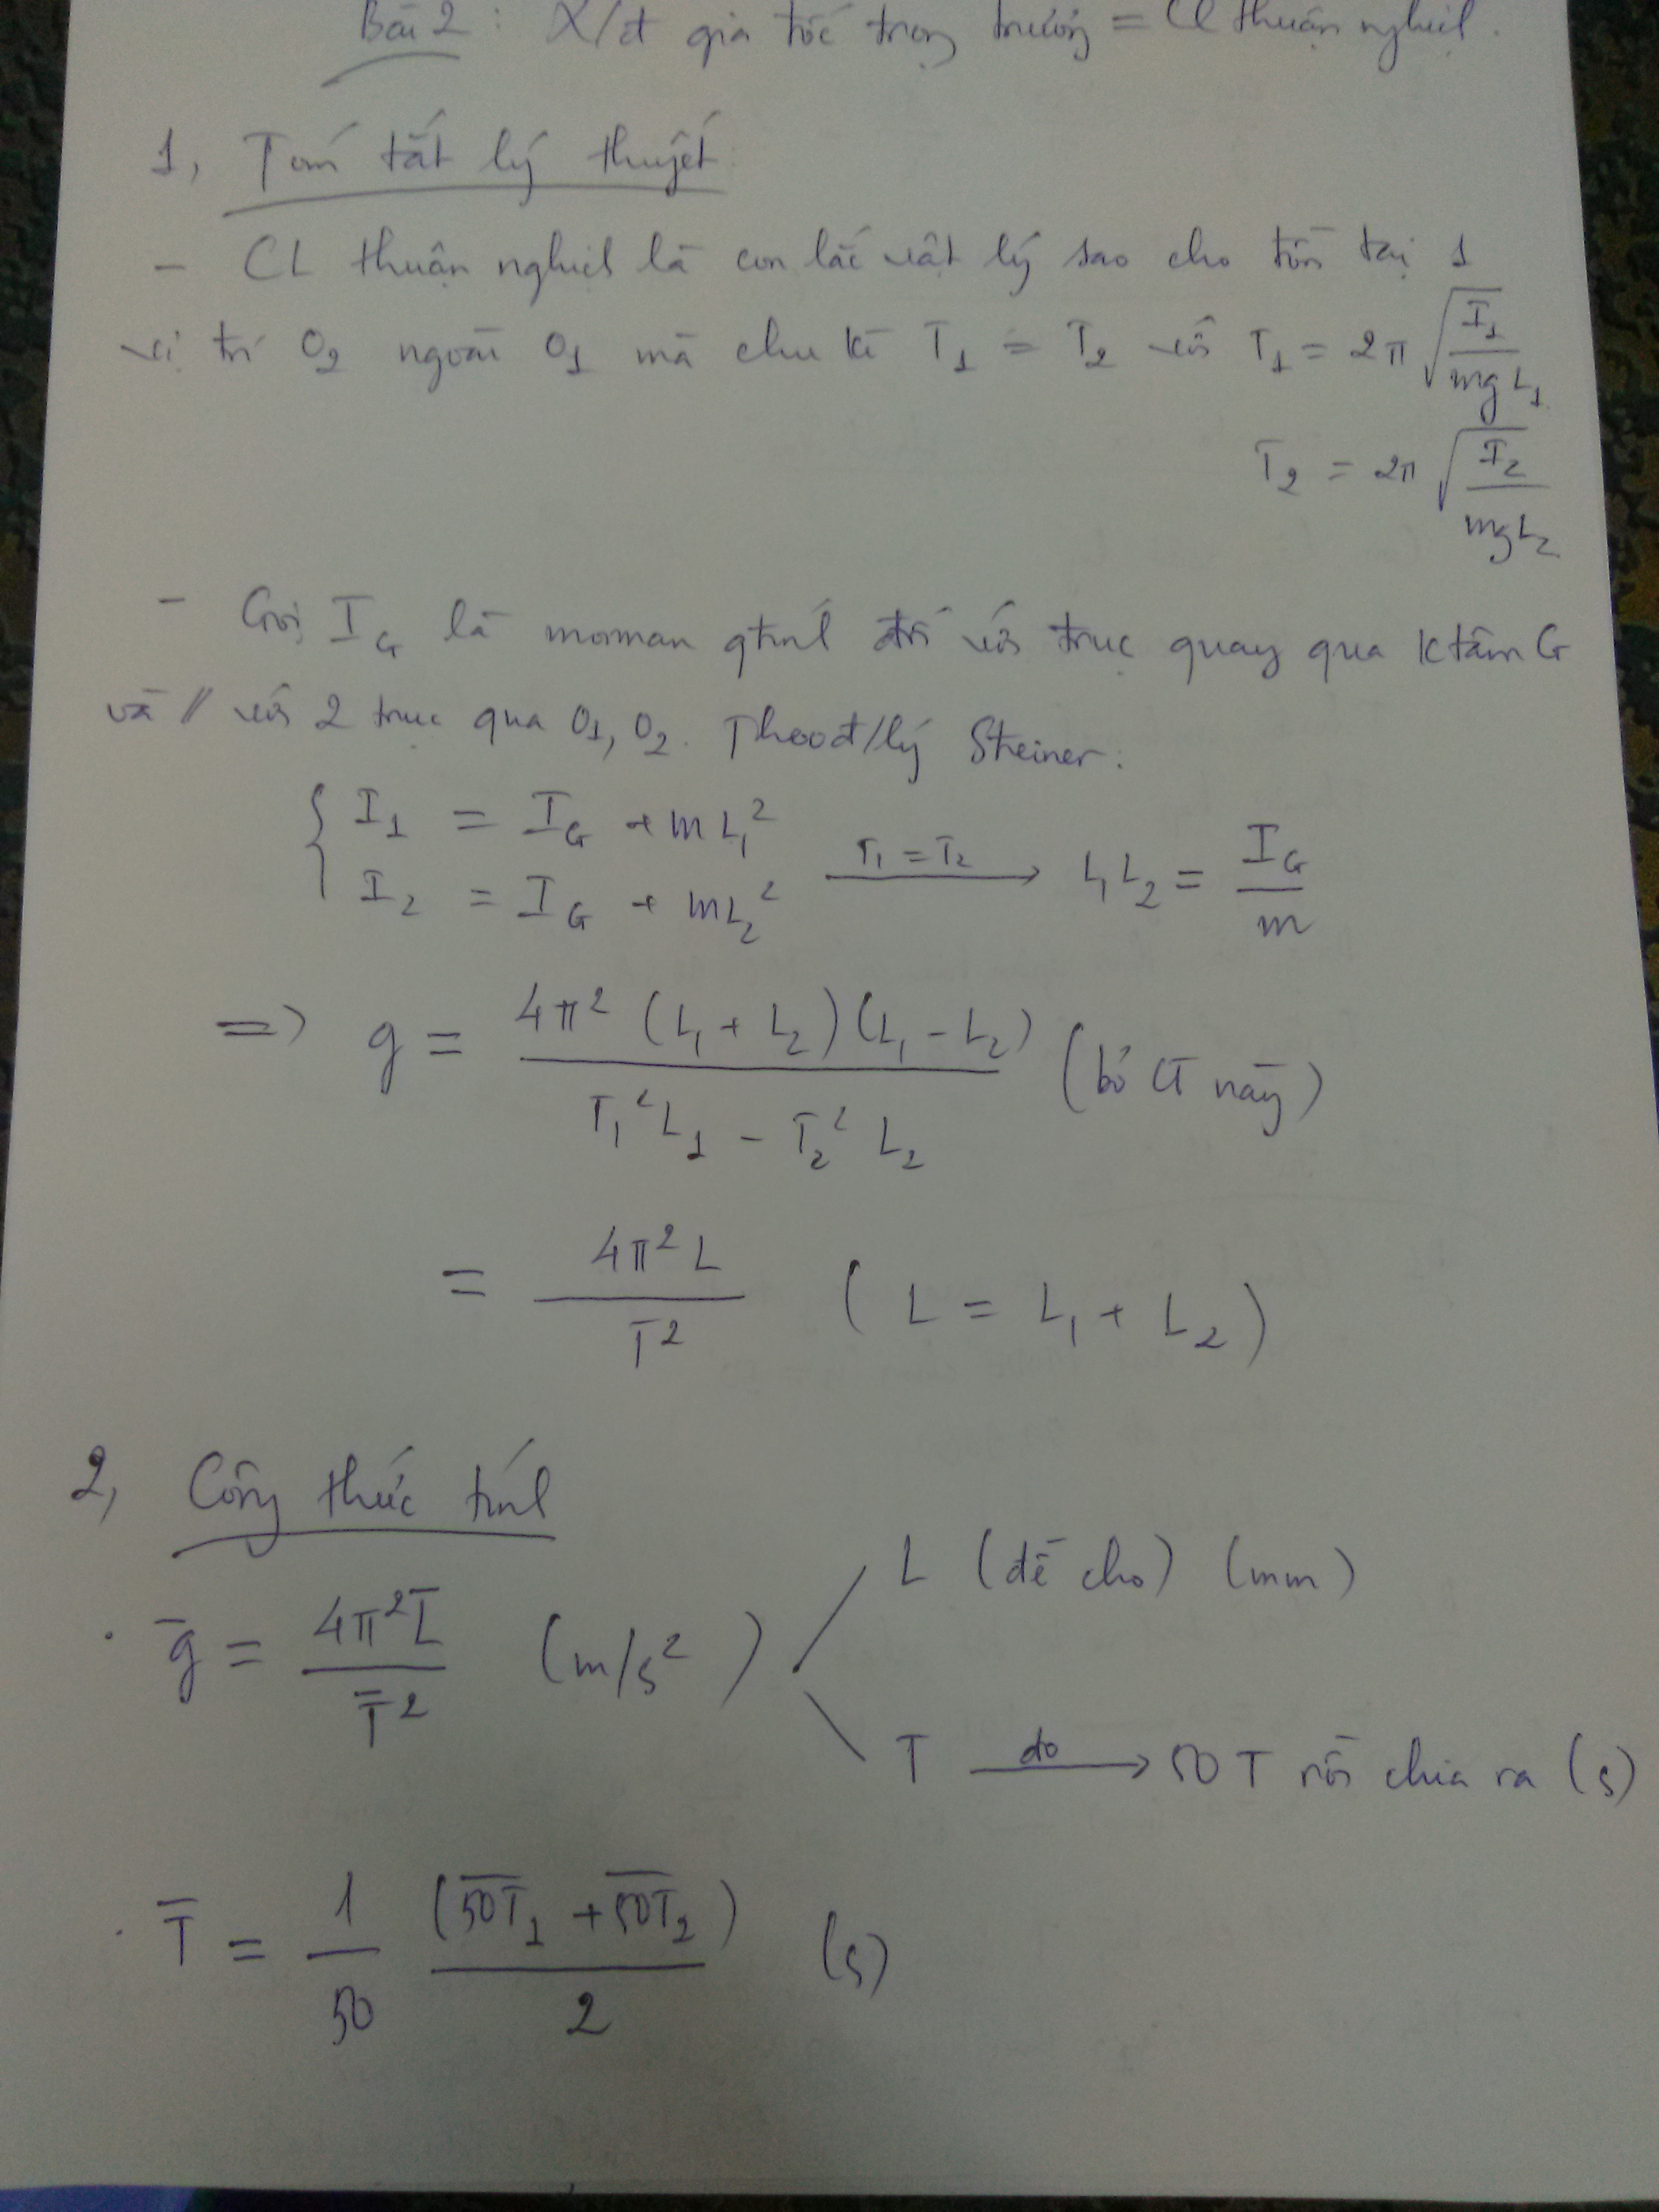 Bài 2 : X/đ gia tốc trọng trường = CL thuận nghịch.
1, Tóm tắt lý thuyết
- CL thuận nghịch là con lắc vật lý sao cho tồn tại 1
vị trí O₂ ngoài O₁ mà chu kì T₁ = T₂ với T₁ = 2π √(I₁/mgL₁)
T₂ = 2π √(I₂/mgL₂)
- Gọi I_G là moman qtính đối với trục quay qua ktâm G
và // với 2 trục qua O₁, O₂. Theo đ/lý Steiner :
{ I₁ = I_G + mL₁²
I₂ = I_G + mL₂² —T₁ = T₂→ L₁L₂ = I_G/m
=> g = 4π² (L₁ + L₂)(L₁ - L₂) / (T₁²L₁ - T₂²L₂) (bỏ CT này)
= 4π²L / T² ( L = L₁ + L₂ )
2, Công thức tính
L (đề cho) (mm)
· g̅ = 4π²L̅ / T̅² (m/s²)
T —đo→ 50T rồi chia ra (s)
· T̅ = 1/50 (5̅0̅T̅₁ + 5̅0̅T̅₂)/2 (s)